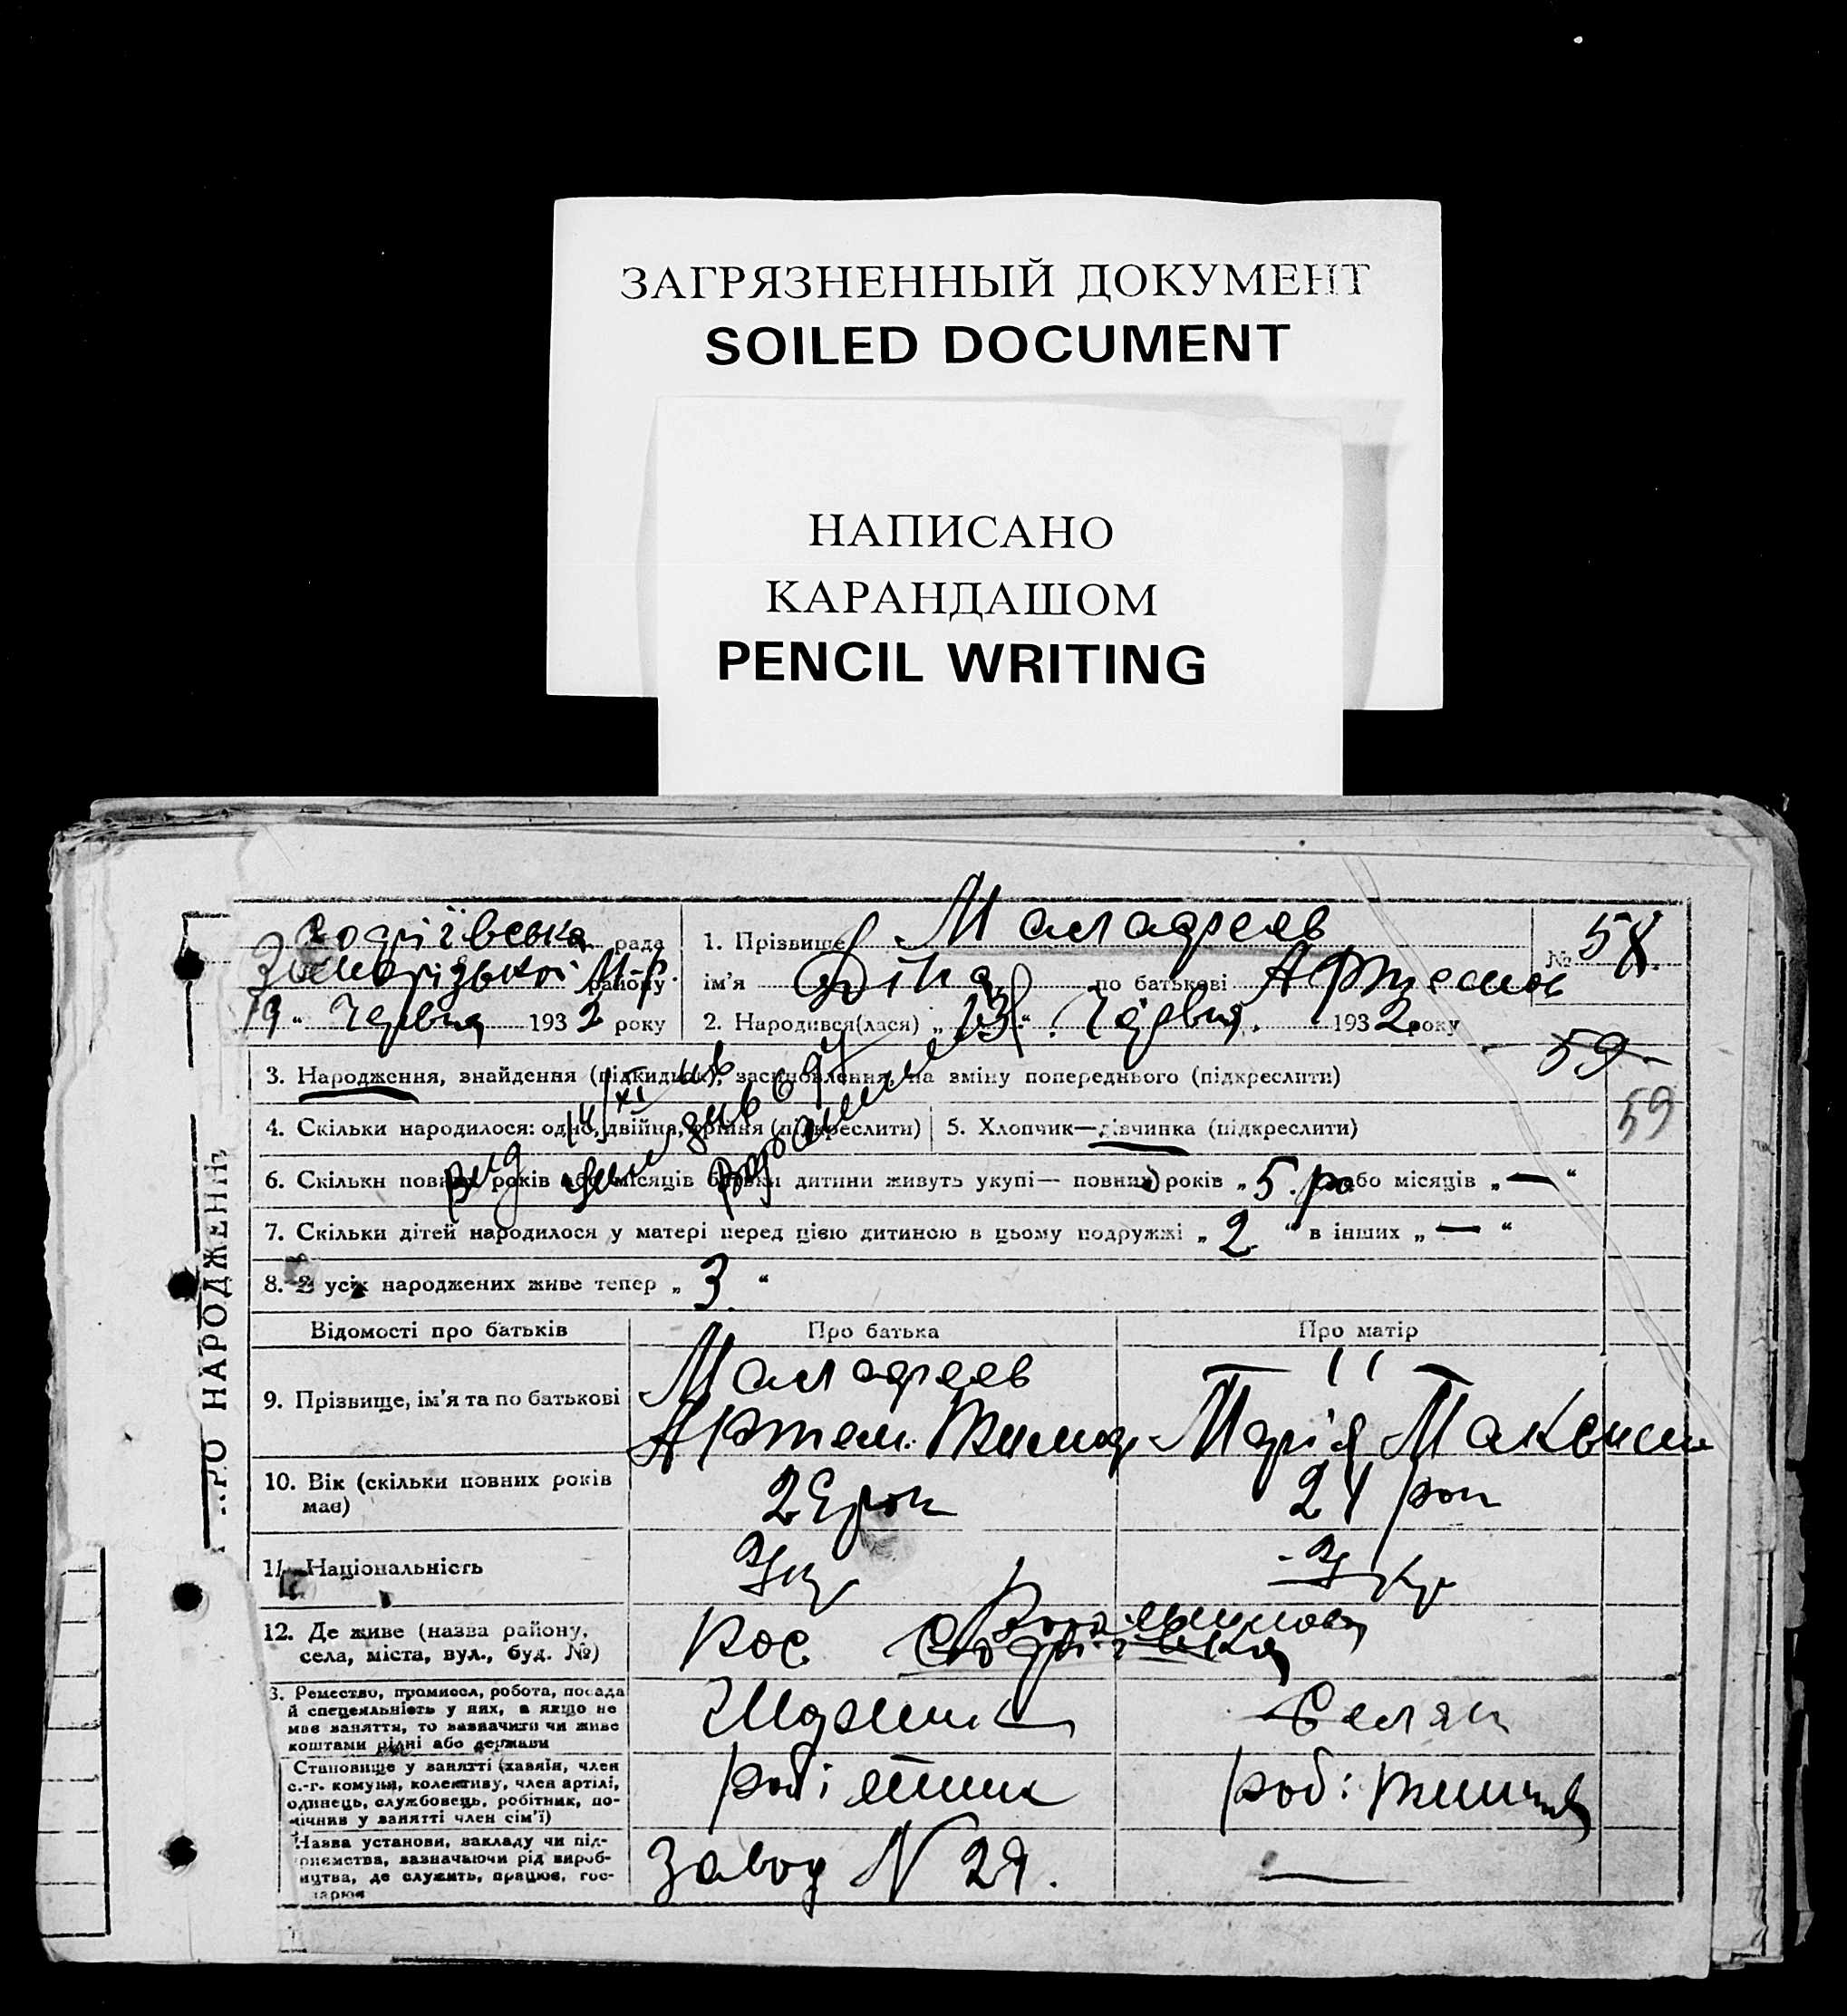 ЗАГРЯЗНЕННЫЙ ДОКУМЕНТ
SOILED DOCUMENT
НАПИСАНО
КАРАНДАШОМ
PENCIL WRITING
рада
району
19 " Червня 1932 року
1. Прізвище Маладреев
ім'я Діна по батькові Артемов
2. Народився(лася) „ 13 " Червня 1932 року
№ 58
59
59
3. Народження, знайдення (підкидьок), засиновлення, на зміну попереднього (підкреслити)
4. Скільки народилося: одно, двійня, трійня (підкреслити)
5. Хлопчик—дівчинка (підкреслити)
6. Скільки повних років або місяців батьки дитини живуть укупі— повних років „ 5 ро або місяців „ — "
7. Скільки дітей народилося у матері перед цією дитиною в цьому подружжі „ 2 " в інших „ — "
8. З усіх народжених живе тепер „ 3 "
Відомості про батьків
Про батька
Про матір
9. Прізвище, ім'я та по батькові
Маладреев
Артем
— " —
Марія Максим
10. Вік (скільки повних років має)
рок
24 рок
11. Національність
Ук
Укр
12. Де живе (назва району, села, міста, вул., буд. №)
Рос.
13. Ремество, промисел, робота, посада й спеціяльність у них, а якщо не має заняття, то зазначити чи живе коштами рідні або держави
Селян
Становище у занятті (хазяїн, член с.-г. комуни, колективу, член артілі, одинець, службовець, робітник, помічник у занятті член сім'ї)
робітник
Назва установи, закладу чи підприємства, зазначаючи рід виробництва, де служить, працює, господарює
Завод N 29.
—
ПРО НАРОДЖЕННЯ